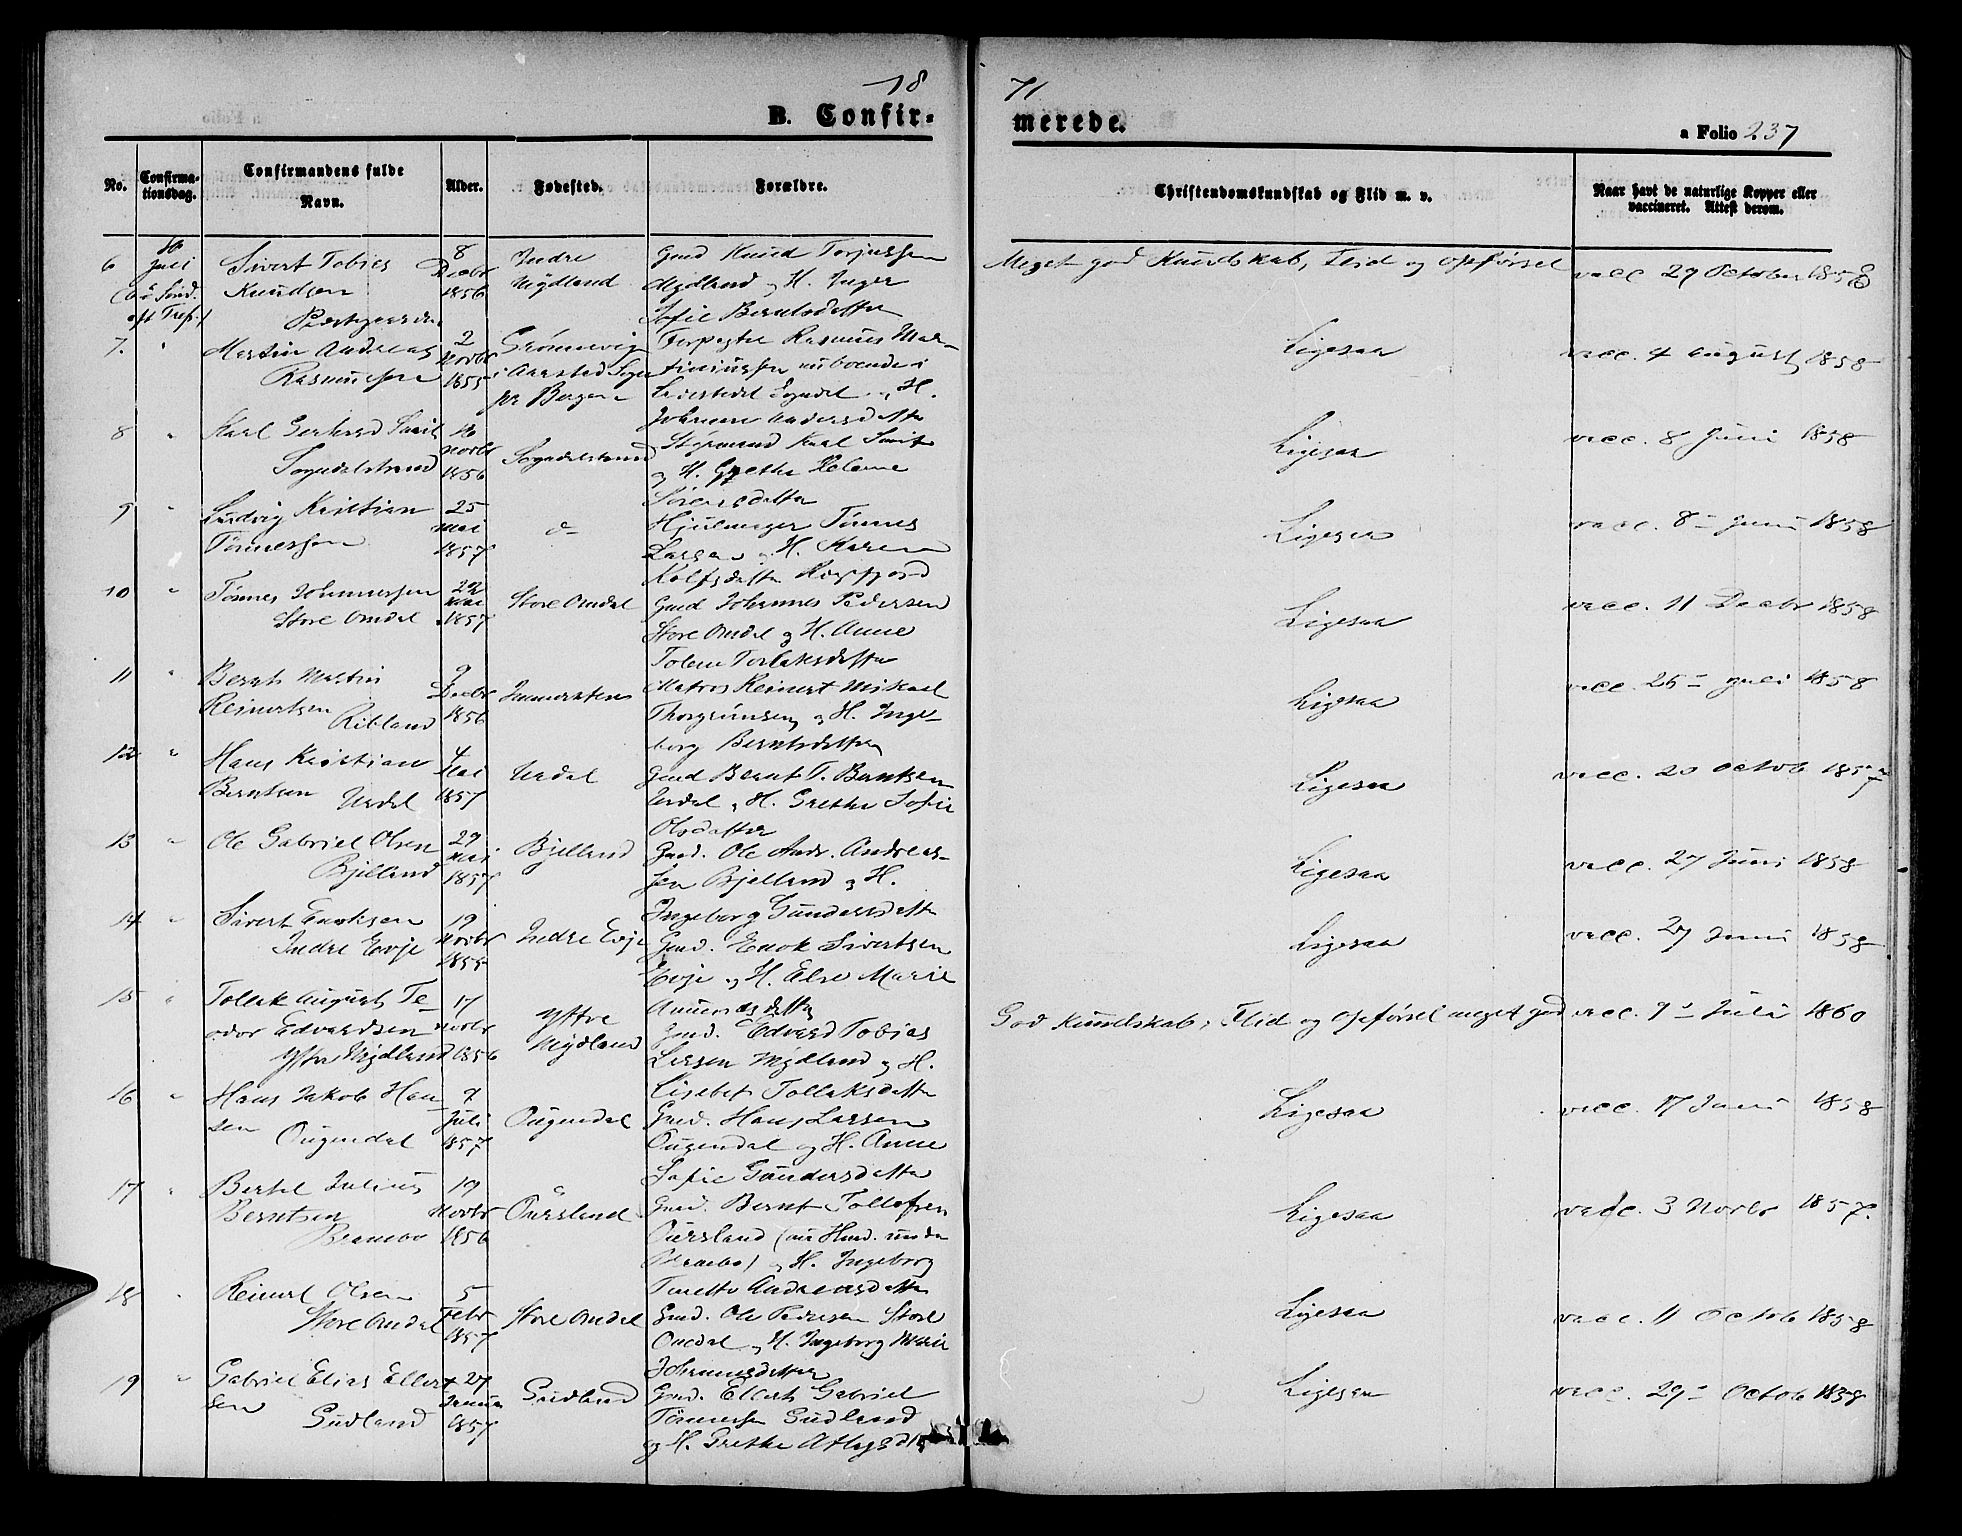 18 71
B. Confirmerede.
a Folio 237
No.
Confirmationsdag.
Confirmandens fulde Navn.
Alder.
Fødested.
Forældre.
Christendomskundskab og Flid m. v.
Naar havt de naturlige Kopper eller vaccineret. Attest derom.
6
Juli
Sivert Tobias
Knudsen
8
Decbr
1856
Indre
Mydland
Gmd Knud Torjussen
Mydland og H. Inger
Sofie Berntsdatter
Meget god Kundskab, Flid og Opførsel
vacc. 29 October 1858
7.
Martin Andreas
Rasmussen
2
Novbr
1855
i Aarstad Sogn
pr Bergen
Rasmus Mar-
tiniussen nu boende i
Sogndal og H.
Johanne Andersdatter
Ligesaa
vacc. 4 August 1858
8
Karl Gerhard Smit
Sogndalstrand
16
Novbr
1856
Sogndalstrand
Styrmand Karl Smit
og H. Grethe Helene
Sørensdatter
Ligesaa
vacc. 8 Juni 1858
9
Ludvig Kristian
Tønnessen
25
Mai
1857
Hjulmager Tønnes
Larsen og H. Karen
Rolfsdatter
Ligesaa
vacc. 8 Juni 1858
10
Tønnes Johannessen
Store Omdal
Mai
1857
Store Omdal
Gmd Johannes Pedersen
Store Omdal og H. Anne
Tolene Torlaksdatter
Ligesaa
vacc. 11 Decbr 1858
11
Bernt Martin
Reinertsen
Ribland
9
Decbr
1856
Immerstens
Matros Reinert Mikael
Thorgrimsen og H. Inge-
borg Berntsdatter
Ligesaa
vacc. 26 Juli 1858
12
Hans Kristian
Berntsen Urdal
4
Mai
1857
Urdal
Gmd Bernt T. Berntsen
Urdal og H. Grethe Sofie
Olsdatter
Ligesaa
vacc. 20 Octob 1857
13
Ole Gabriel Olsen
Bjelland
29
Mai
1857
Bjelland
Gmd. Ole Andr. Andreas-
sen Bjelland og H.
Ingeborg Gundersdatter
Ligesaa
vacc. 27 Juni 1858
14
Sivert Enoksen
Indre Evje
19
Novbr
1855
Indre Evje
Gmd. Enok Sivertsen
Evje og H. Else Marie
Ligesaa
vacc. 27 Juni 1858
15
Tollak August Te-
odor Edvardsen
Ytre Mydland
17
Novbr
1856
Ytre
Mydland
Gmd. Edvard Tobias
Larsen Mydland og H.
Lisebet Tollaksdatter
God Kundskab, Flid og Opførsel meget god
vacc. 9 Juli 1860
16
Hans Jakob Han-
sen
Ougendal
7
Juli
1857
Ougendal
Gmd. Hans Larsen
Ougendal og H. Anne
Sofie Gundersdatter
Ligesaa
vacc. 17 Juni 1858
17
Bertel Julius
Berntsen
Brambo
19
Novbr
1856
Oursland
Gmd. Bernt Tollefsen
Oursland (nu Hmd. under
Brambo) og H. Ingeborg
Tunette Andreasdatter
Ligesaa
vacc. 3 Novbr 1857.
18
Reinert Olsen
Store Omdal
5
Febr
1857
Store Omdal
Gmd. Ole Pedersen Store
Omdal og H. Ingeborg Marie
Johannesdatter
Ligesaa
vacc. 11 Octob 1858
19
Gabriel Elias Ellert-
sen
Gudland
27
Januar
1857
Gudland
Gmd. Ellert Gabriel
Tønnessen Gudland
og H. Grethe
Ligesaa
vacc. 29 Octob 1858